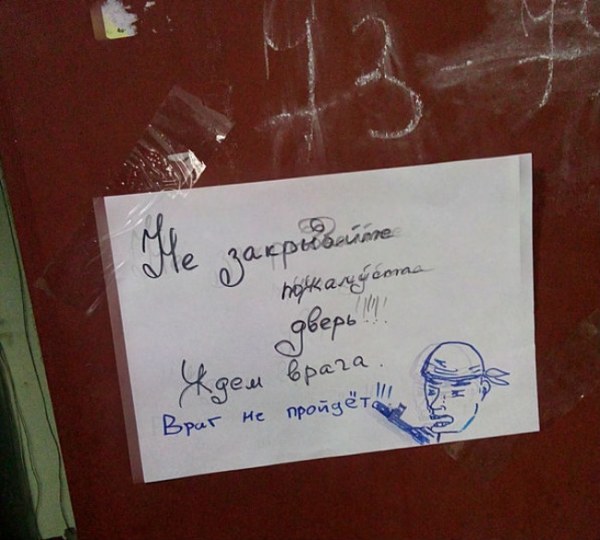 43
Не закрывайте
пожалуйста
дверь!!!!!
Ждем врача.
Враг не пройдёт!!!